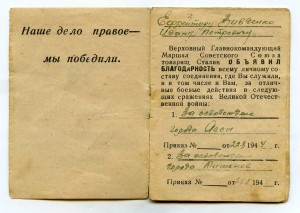 Наше дело правое—
мы победили.
Ефрейтору
Ивану Петровичу
Верховный Главнокомандующий
Маршал Советского Союза
товарищ Сталин ОБЪЯВИЛ
БЛАГОДАРНОСТЬ всему личному со-
ставу соединения, где Вы служили,
и в том числе и Вам, за отлич-
ные боевые действия в следую-
щих сражениях Великой Отечествен-
ной войны:
1. За освобождение
города
Приказ № от 194
2. За освобождение
города
Приказ № от 194